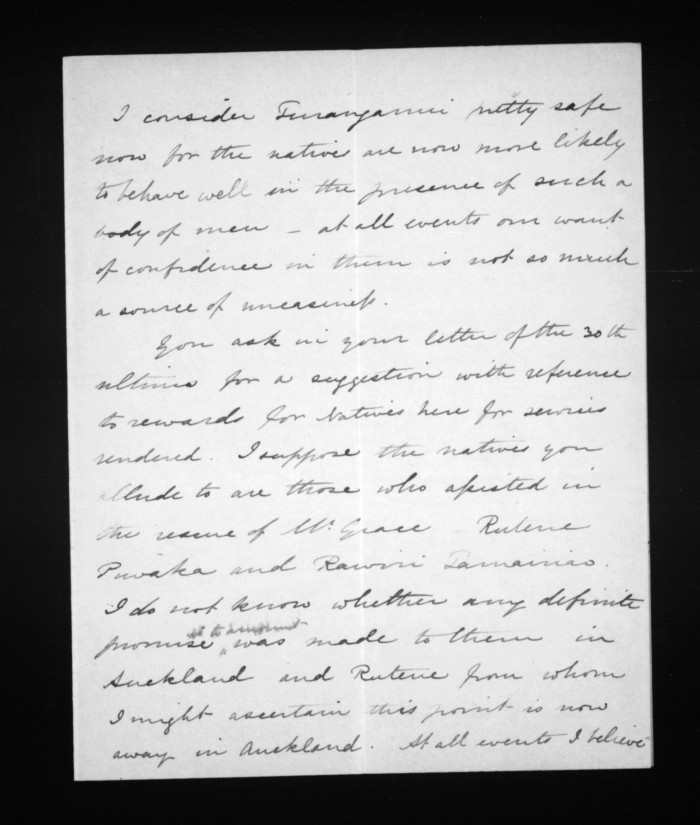 I consider Turanganui pretty safe
now for the natives are now more likely
to behave well in the presence of such a
body of men - at all events our want
of confidence in them is not so much
a source of uneasiness.
You ask in your letter of the 30th
ultimo for a suggestion with reference
to rewards for Natives here for services
rendered. I suppose the natives you
allude to are those who assisted in
the rescue of Mr. Grace - Rutene
Piwaka and Rawiri Tamainao.
I do not know whether any definite
as to amount
promise was made to them in
Auckland and Rutene from whom
I might ascertain this point is now
away in Auckland. At all events I believe